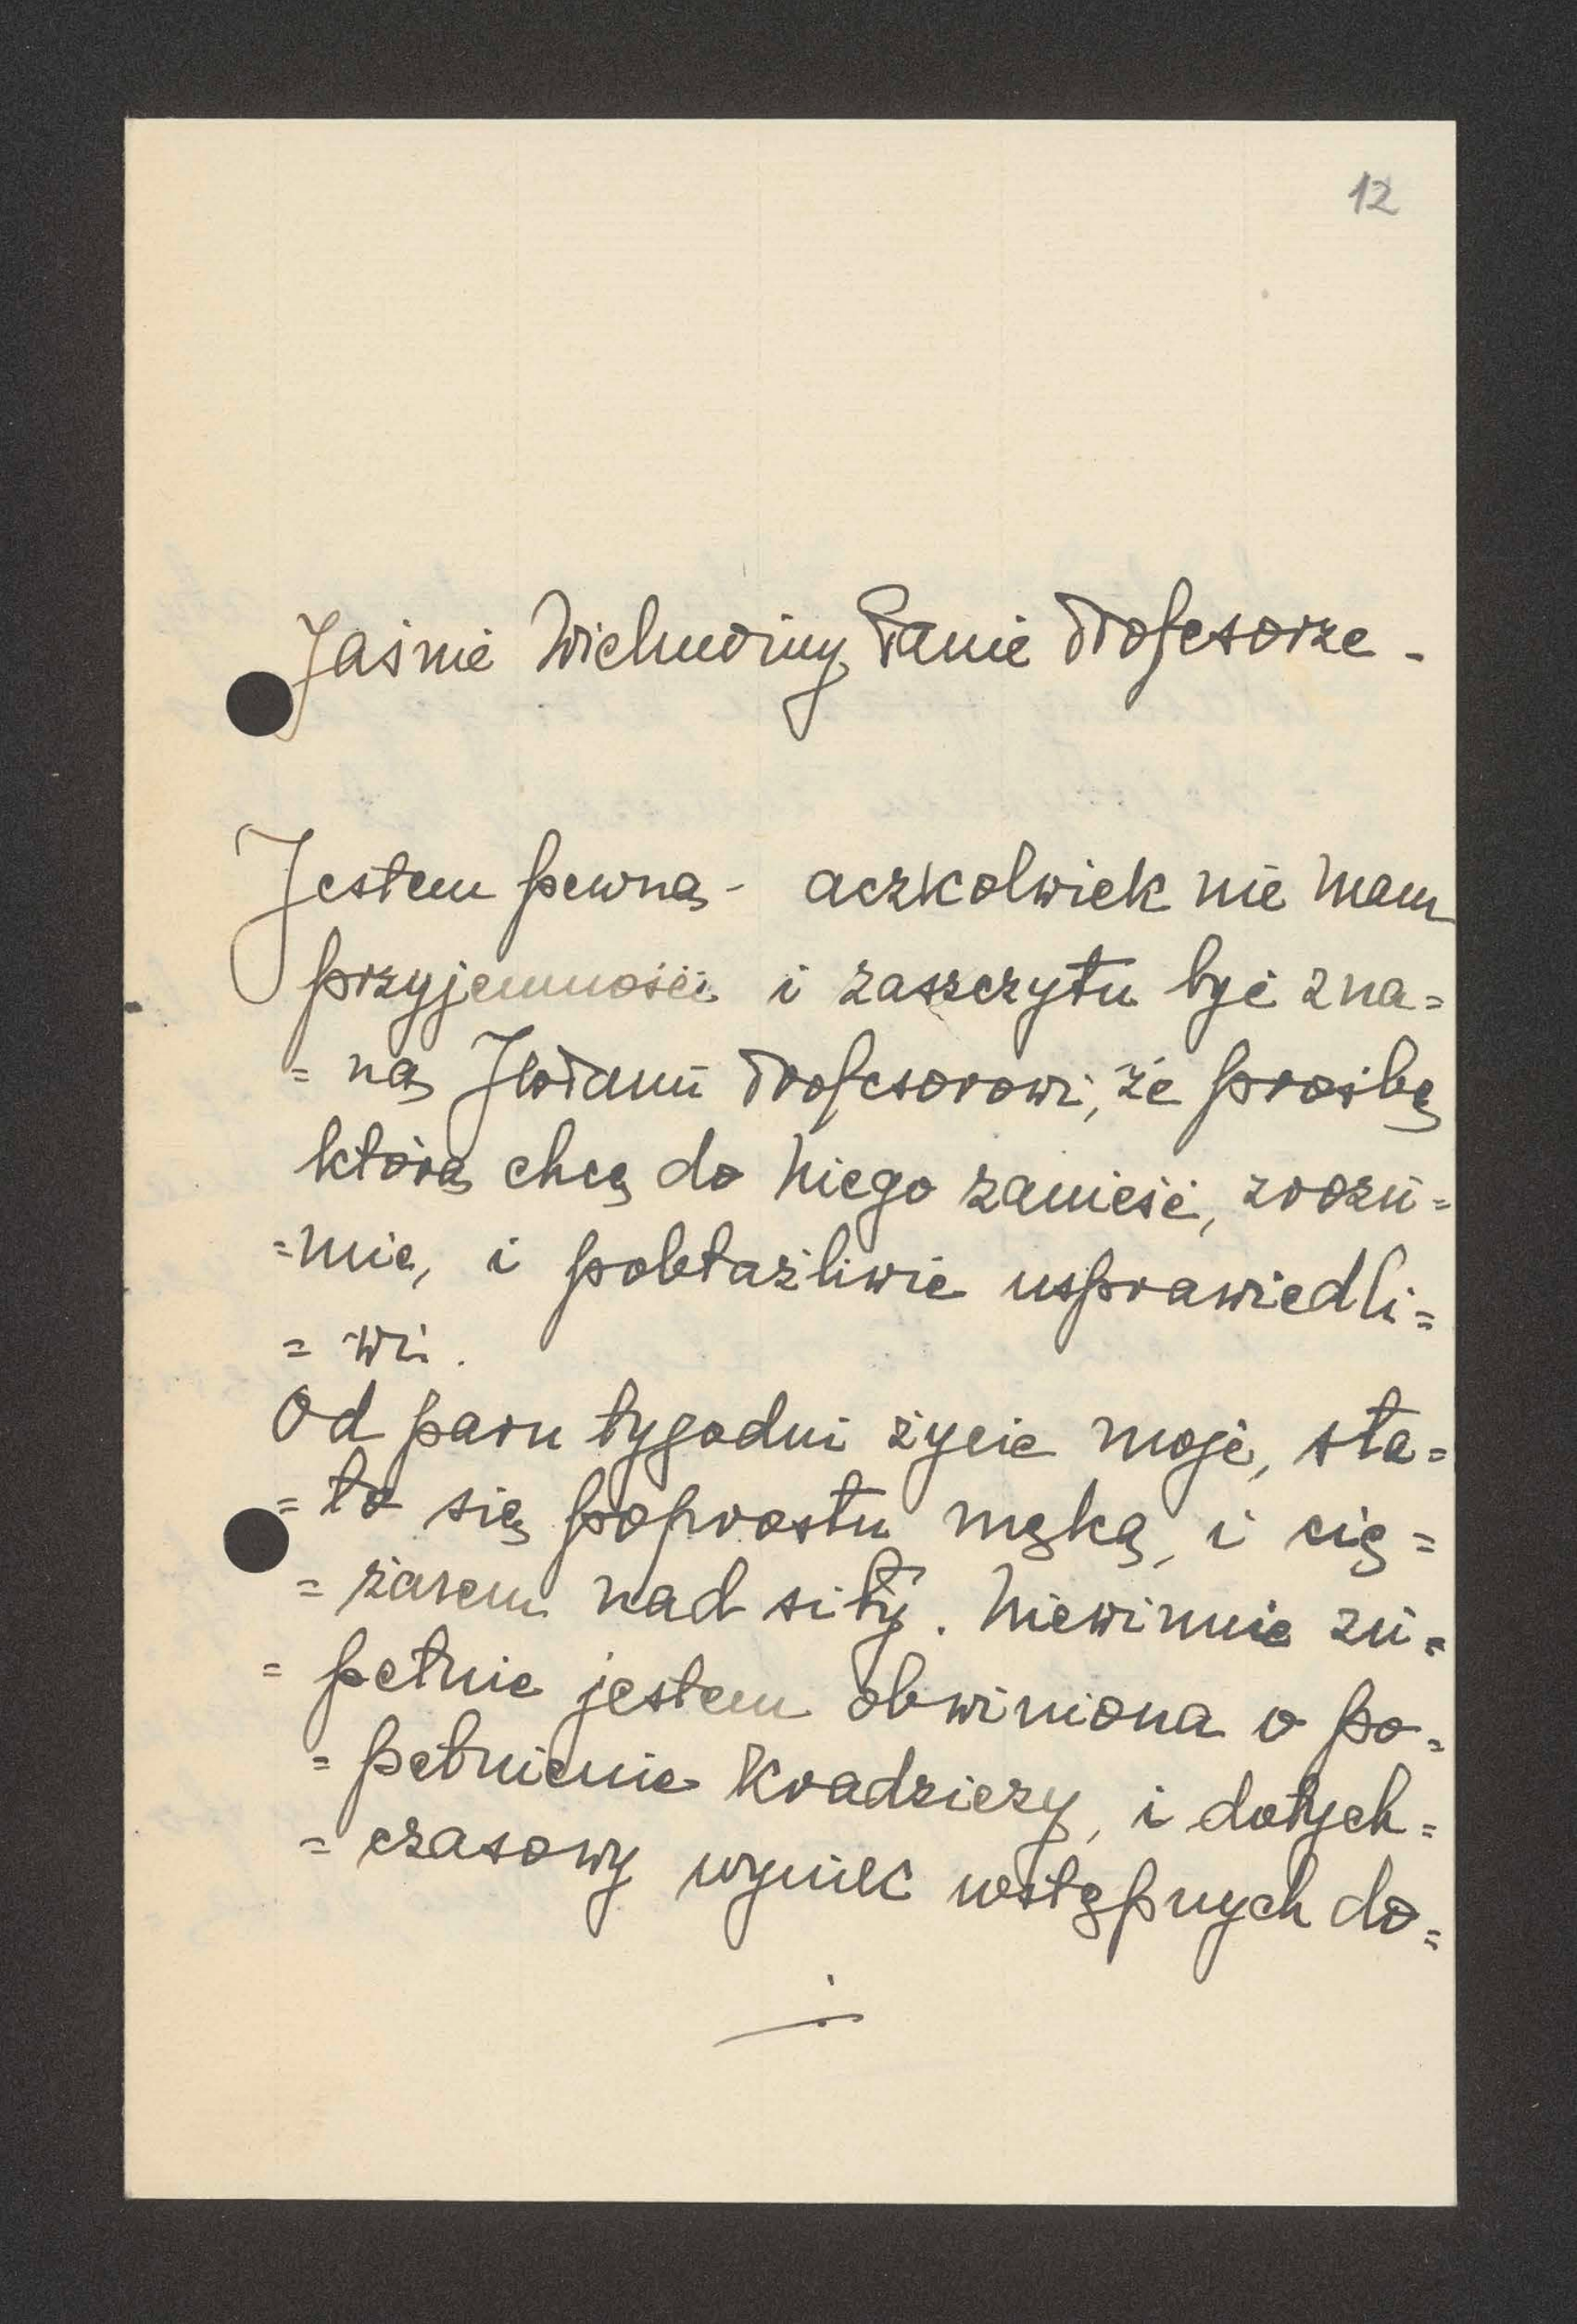 12
Jaśnie Wielmożny Panie Profesorze -
Jestem pewną - aczkolwiek nie mam
przyjemności i zaszczytu być zna=
= ną JWPanu Profesorowi, że prośbę
którą chcę do Niego zanieść, zrozu=
=mie, i pobłażliwie usprawiedli=
= wi.
Od paru tygodni życie moje, sta=
= ło się poprostu męką, i cię=
= żarem nad siły. Niewinnie zu=
= pełnie jestem obwiniona o po=
= pełnienie kradzieży, i dotych=
= czasowy wynik wstępnych do=